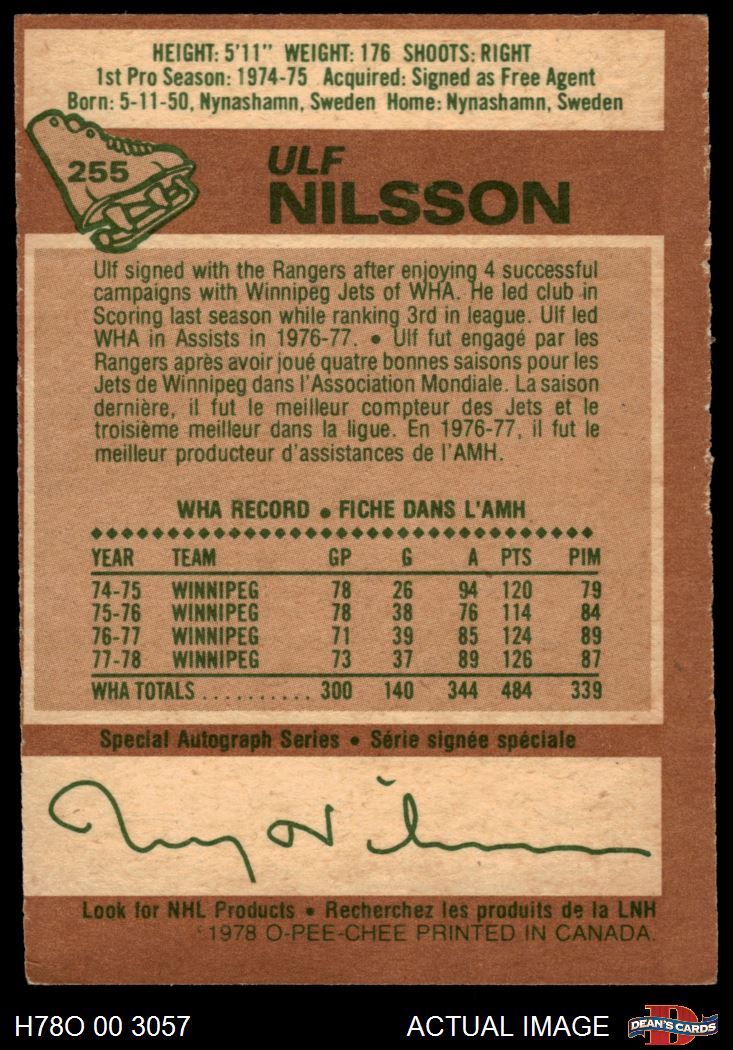 HEIGHT: 5'11" WEIGHT: 176 SHOOTS: RIGHT
1st Pro Season: 1974-75 Acquired: Signed as Free Agent
Born: 5-11-50, Nynashamn, Sweden Home: Nynashamn, Sweden
255
ULF
NILSSON
Ulf signed with the Rangers after enjoying 4 successful
campaigns with Winnipeg Jets of WHA. He led club in
Scoring last season while ranking 3rd in league. Ulf led
WHA in Assists in 1976-77. • Ulf fut engagé par les
Rangers après avoir joué quatre bonnes saisons pour les
Jets de Winnipeg dans l'Association Mondiale. La saison
dernière, il fut le meilleur compteur des Jets et le
troisième meilleur dans la ligue. En 1976-77, il fut le
meilleur producteur d'assistances de l'AMH.
WHA RECORD • FICHE DANS L'AMH
YEAR TEAM GP G A PTS PIM
74-75 WINNIPEG 78 26 94 120 79
75-76 WINNIPEG 78 38 76 114 84
76-77 WINNIPEG 71 39 85 124 89
77-78 WINNIPEG 73 37 89 126 87
WHA TOTALS .......... 300 140 344 484 339
Special Autograph Series • Série signée spéciale
Look for NHL Products • Recherchez les produits de la LNH
1978 O-PEE-CHEE PRINTED IN CANADA.
H78O 00 3057 ACTUAL IMAGE D DEAN'S CARDS